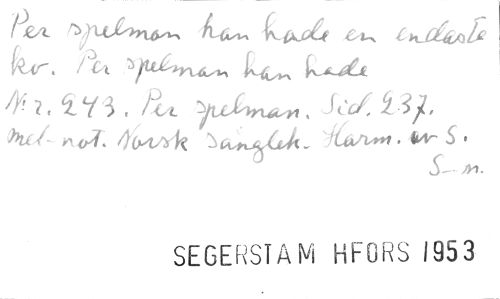 Per spelman han hade en endaste
ko. Per spelman han hade
Nr. 243. Per spelman. Sid. 237.
mel-not. Norsk sånglek. Harm. av S.
S-m.
SEGERSTAM HFORS 1953